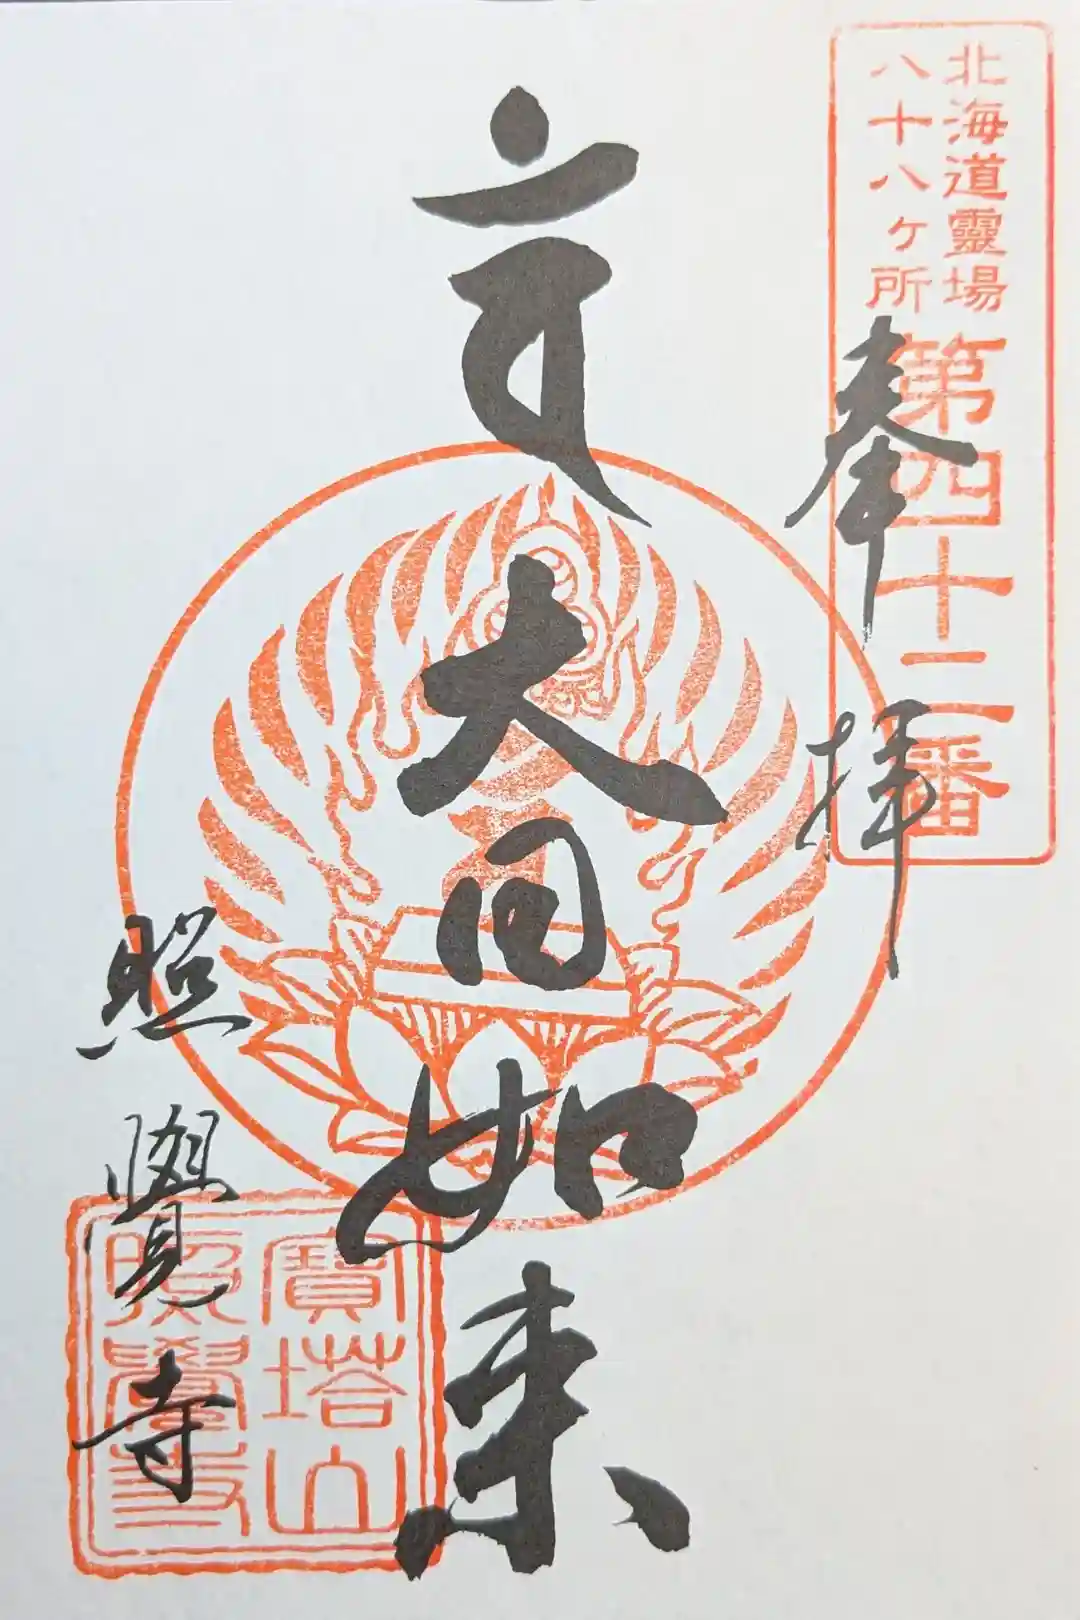 北海道靈場
八十八ケ所
第四十二番
奉拝
大日如来
照覺寺
寶塔山
照覺寺